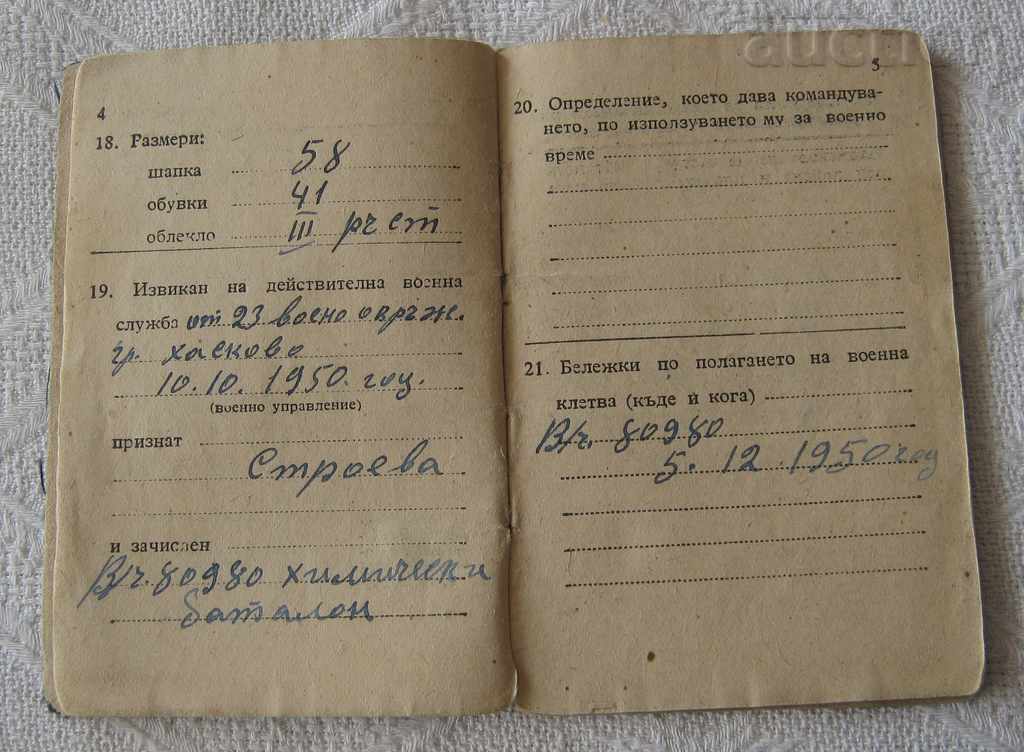 4
18. Размери:
шапка 58
обувки 41
облекло III ръст
19. Извикан на действителна военна
служба от 23 военно окръж.
гр. хасково
10.10. 1950. год.
(военно управление)
признат
Строева
и зачислен
В/ч. 80980 химически
баталон
5
20. Определение, което дава командува-
нето, по използуването му за военно
време
21. Бележки по полагането на военна
клетва (къде и кога)
В/ч. 80980
5. 12 1950 год
aucti